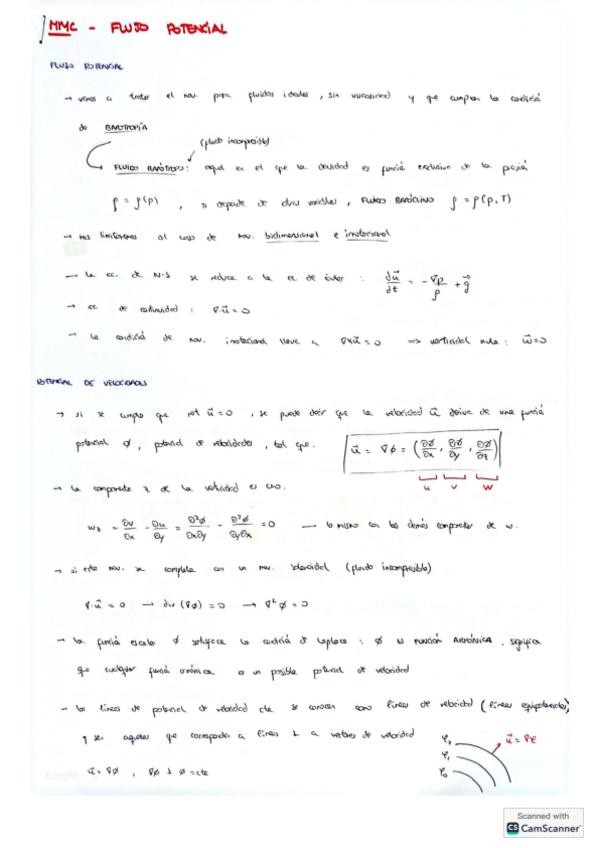 MMC - FLUJO POTENCIAL
FLUJO POTENCIAL
→ vamos a tratar el mov. para fluidos ideales, sin viscosidad y que cumplan la condición
de BAROTROPÍA
(fluido incompresible)
FLUIDO BARÓTROPO: aquel en el que la densidad es función exclusiva de la presión
ρ = ρ(p) , si depende de otras variables, FLUIDO ρ = ρ(p,T)
→ nos limitaremos al caso de mov. bidimensional e irrotacional
→ la ec. de N-S se reduce a la ec de Euler : du⃗/dt = -∇p/ρ + g⃗
→ ec. de continuidad : ∇·u⃗ = 0
→ la condición de mov. irrotacional lleva a ∇×u⃗ = 0 ⇒ vorticidad nula : ω⃗ = 0
POTENCIAL DE VELOCIDADES
→ si se cumple que rot u⃗ = 0 , se puede decir que la velocidad u⃗ deriva de una función
potencial φ , potencial de velocidades , tal que. u⃗ = ∇φ = (∂φ/∂x , ∂φ/∂y , ∂φ/∂z)
u v w
→ la componente z de la vorticidad es cero.
ωz = ∂v/∂x - ∂u/∂y = ∂²φ/∂x∂y - ∂²φ/∂y∂x = 0 → lo mismo con las demás componentes de ω.
→ si este mov. se completa con un mov. solenoidal (fluido incompresible)
∇·u⃗ = 0 → div (∇φ) = 0 → ∇²φ = 0
→ la función escalar φ satisface la condición de Laplace : φ es FUNCIÓN ARMÓNICA , significa
que cualquier función armónica es un posible potencial de velocidad
→ las líneas de potencial de velocidad cte se conocen como líneas de velocidad (líneas equipotenciales)
y son aquellas que corresponden a líneas ⊥ a vectores de velocidad
u⃗ = ∇φ , ∇φ ⊥ φ = cte
φ₂
φ₁
φ₀
Scanned with
CS CamScanner